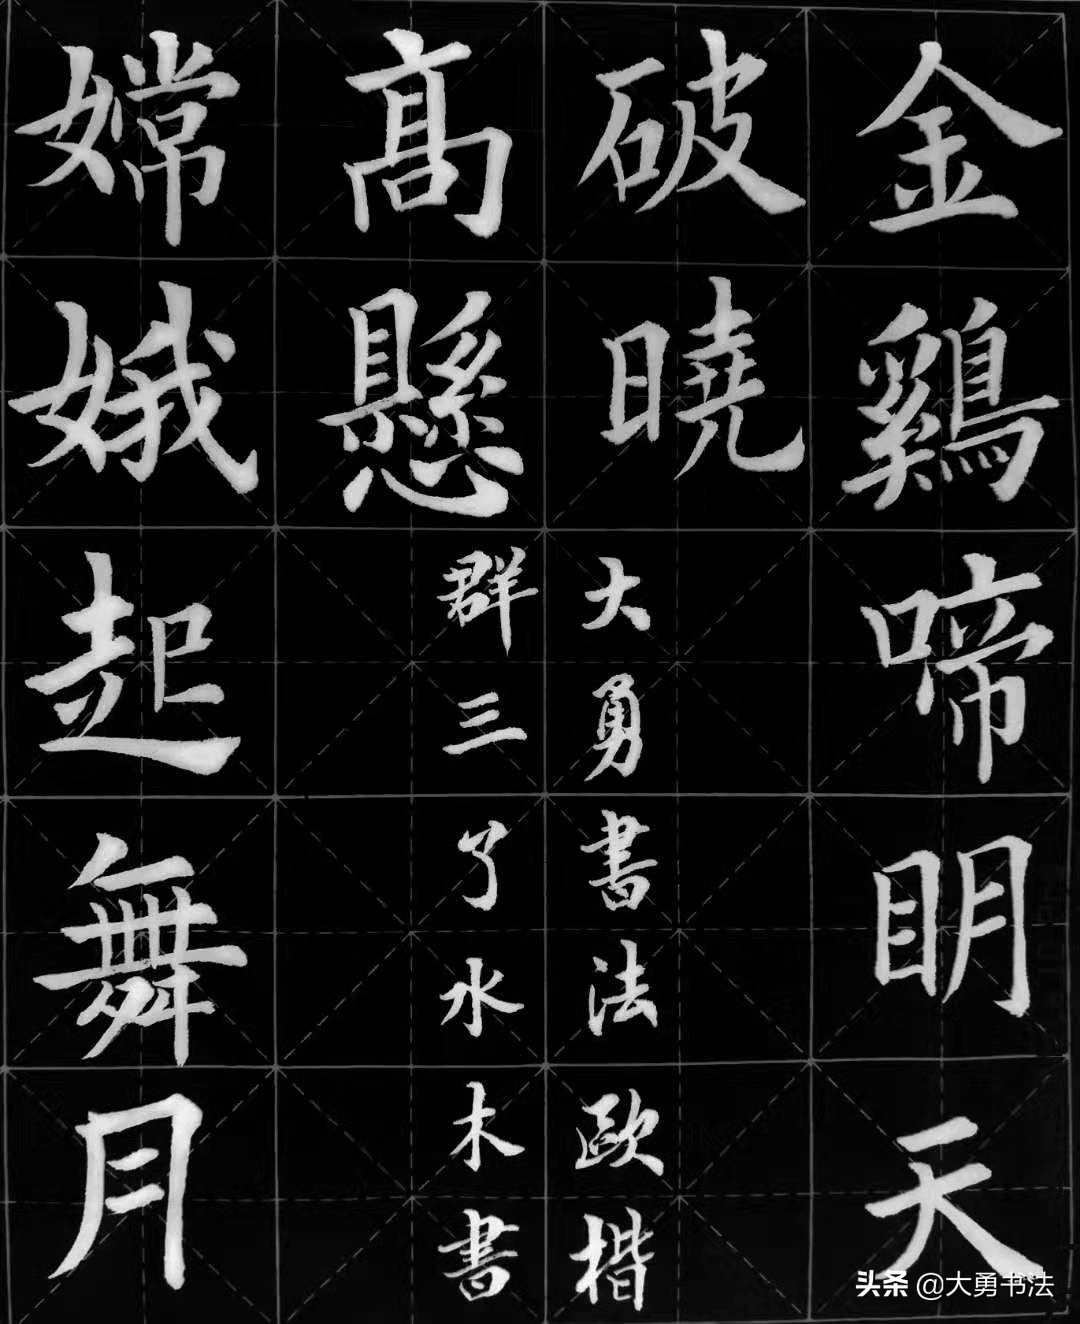 金鷄啼眀天
破曉
大勇書法歐楷
髙懸
群三了水木書
嫦娥起舞月
头条 @大勇书法